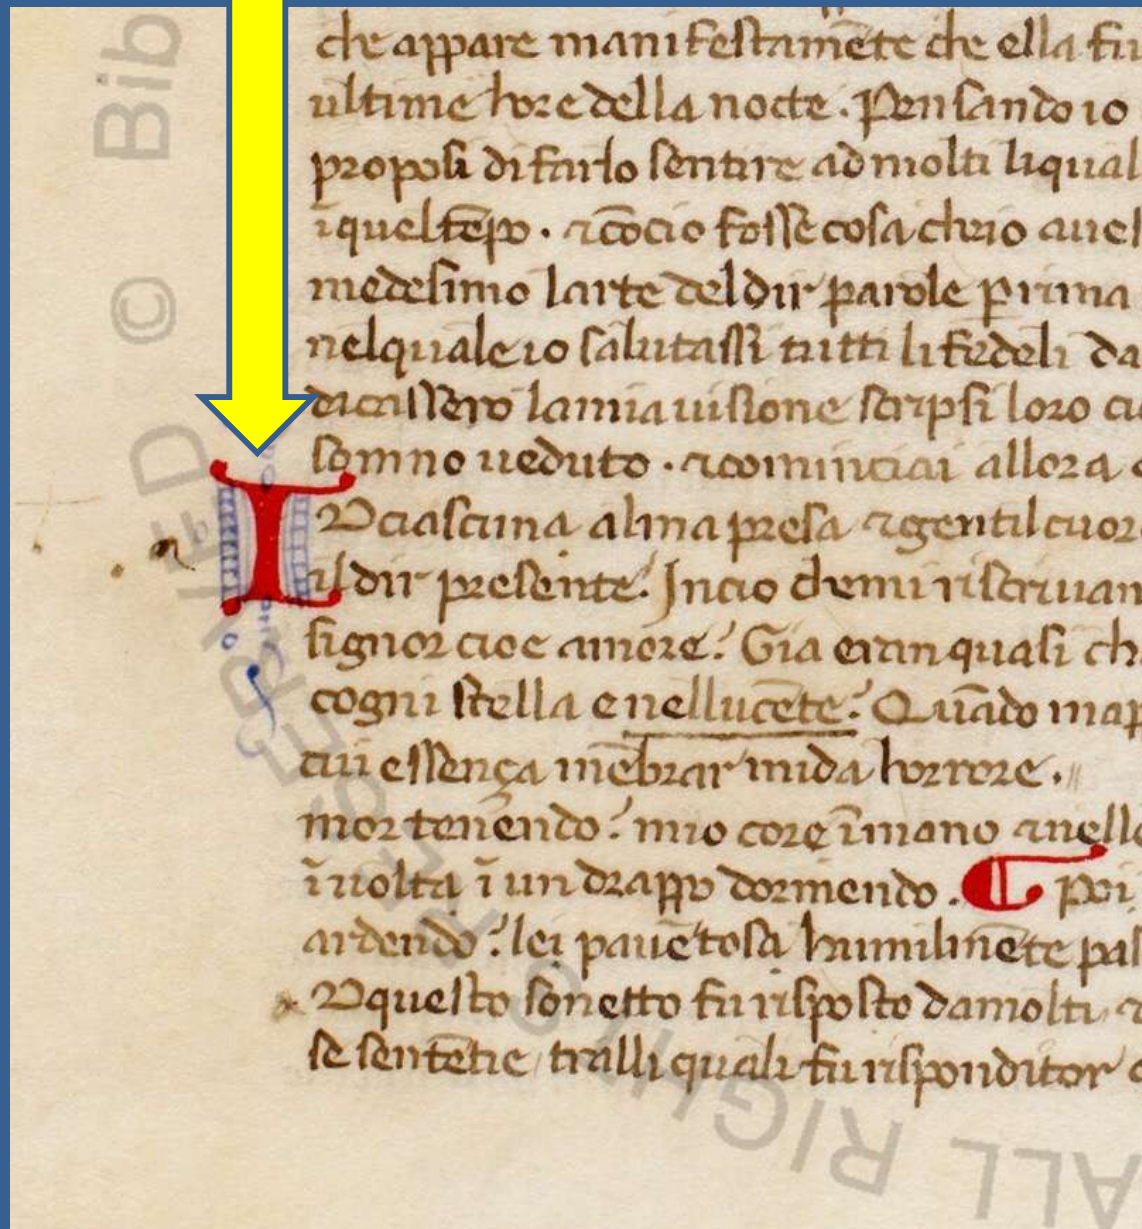 che appare manifestamēte che ella fu
ultime hore della nocte. Pensando io
proposi di farlo sentire ad molti liqual
ī quel tēpo. ⁊ cō cio fosse cosa chio aues
medesimo larte del dir parole prima
nelquale io salutassi tutti li fedeli da
dicassero la mia uisione scripsi loro
somno ueduto. ⁊ cominciai allora
A ciascuna alma presa ⁊ gentil cuor
il dir presente. In cio che mi riscriuan
signor cioe amore. Gia eran quasi ch
cogni stella e nellucēte. Quādo map
cui essença mēbrar mi da horrore.
mor tenendo. mio core ī mano ⁊ nelle
īuolta ī un drappo dormendo. ¶ Poi
ardendo. lei pauētosa humilmēte pas
A questo sonetto fu risposto da molti ⁊
se sentētie tralli quali fu risponditor
Bib ©
ALL RIGHTS RESERVED